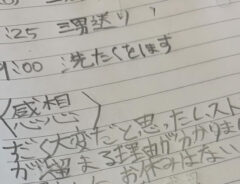 :25 三男送り
9:00 洗たくをほします
〈感想〉
だく大変だと思ったし、スト
が留まる理由が分かりま
お休みはない